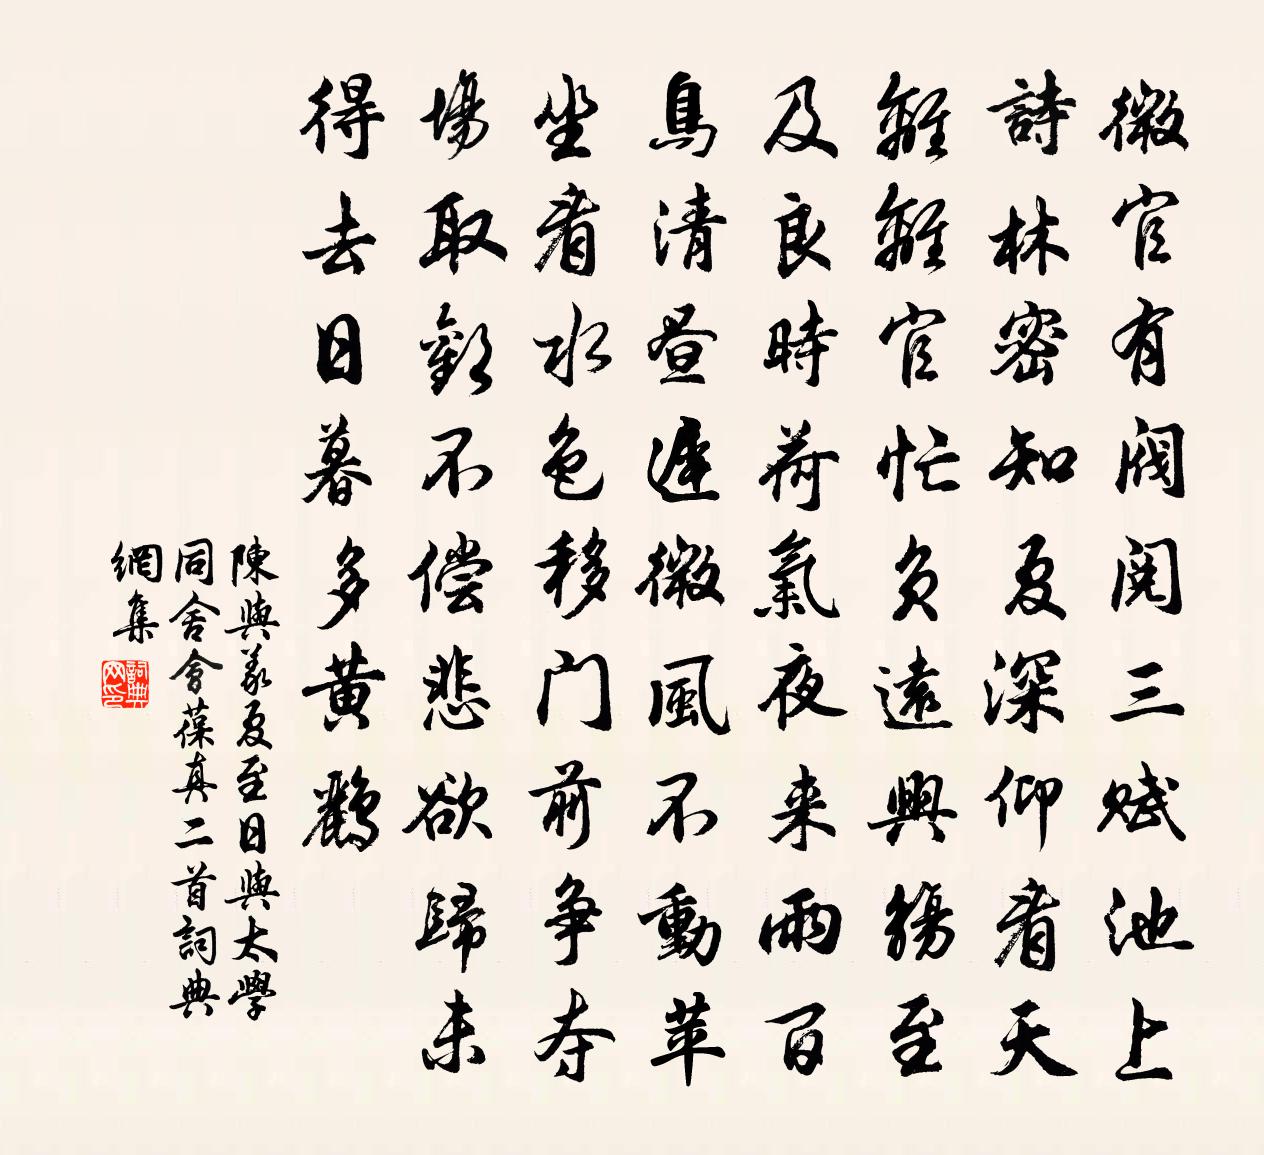 微官有閥閱三賦池上
詩林密知夏深仰看天
離離官忙負遠興觴至
及良時荷氣夜来雨百
鳥清晝遲微風不動苹
坐看水色移门前争夺
場取歡不偿悲欲歸未
得去日暮多黄鸝
陳與義夏至日與太學
同舍會葆真二首詞典
網集
詞典
网印